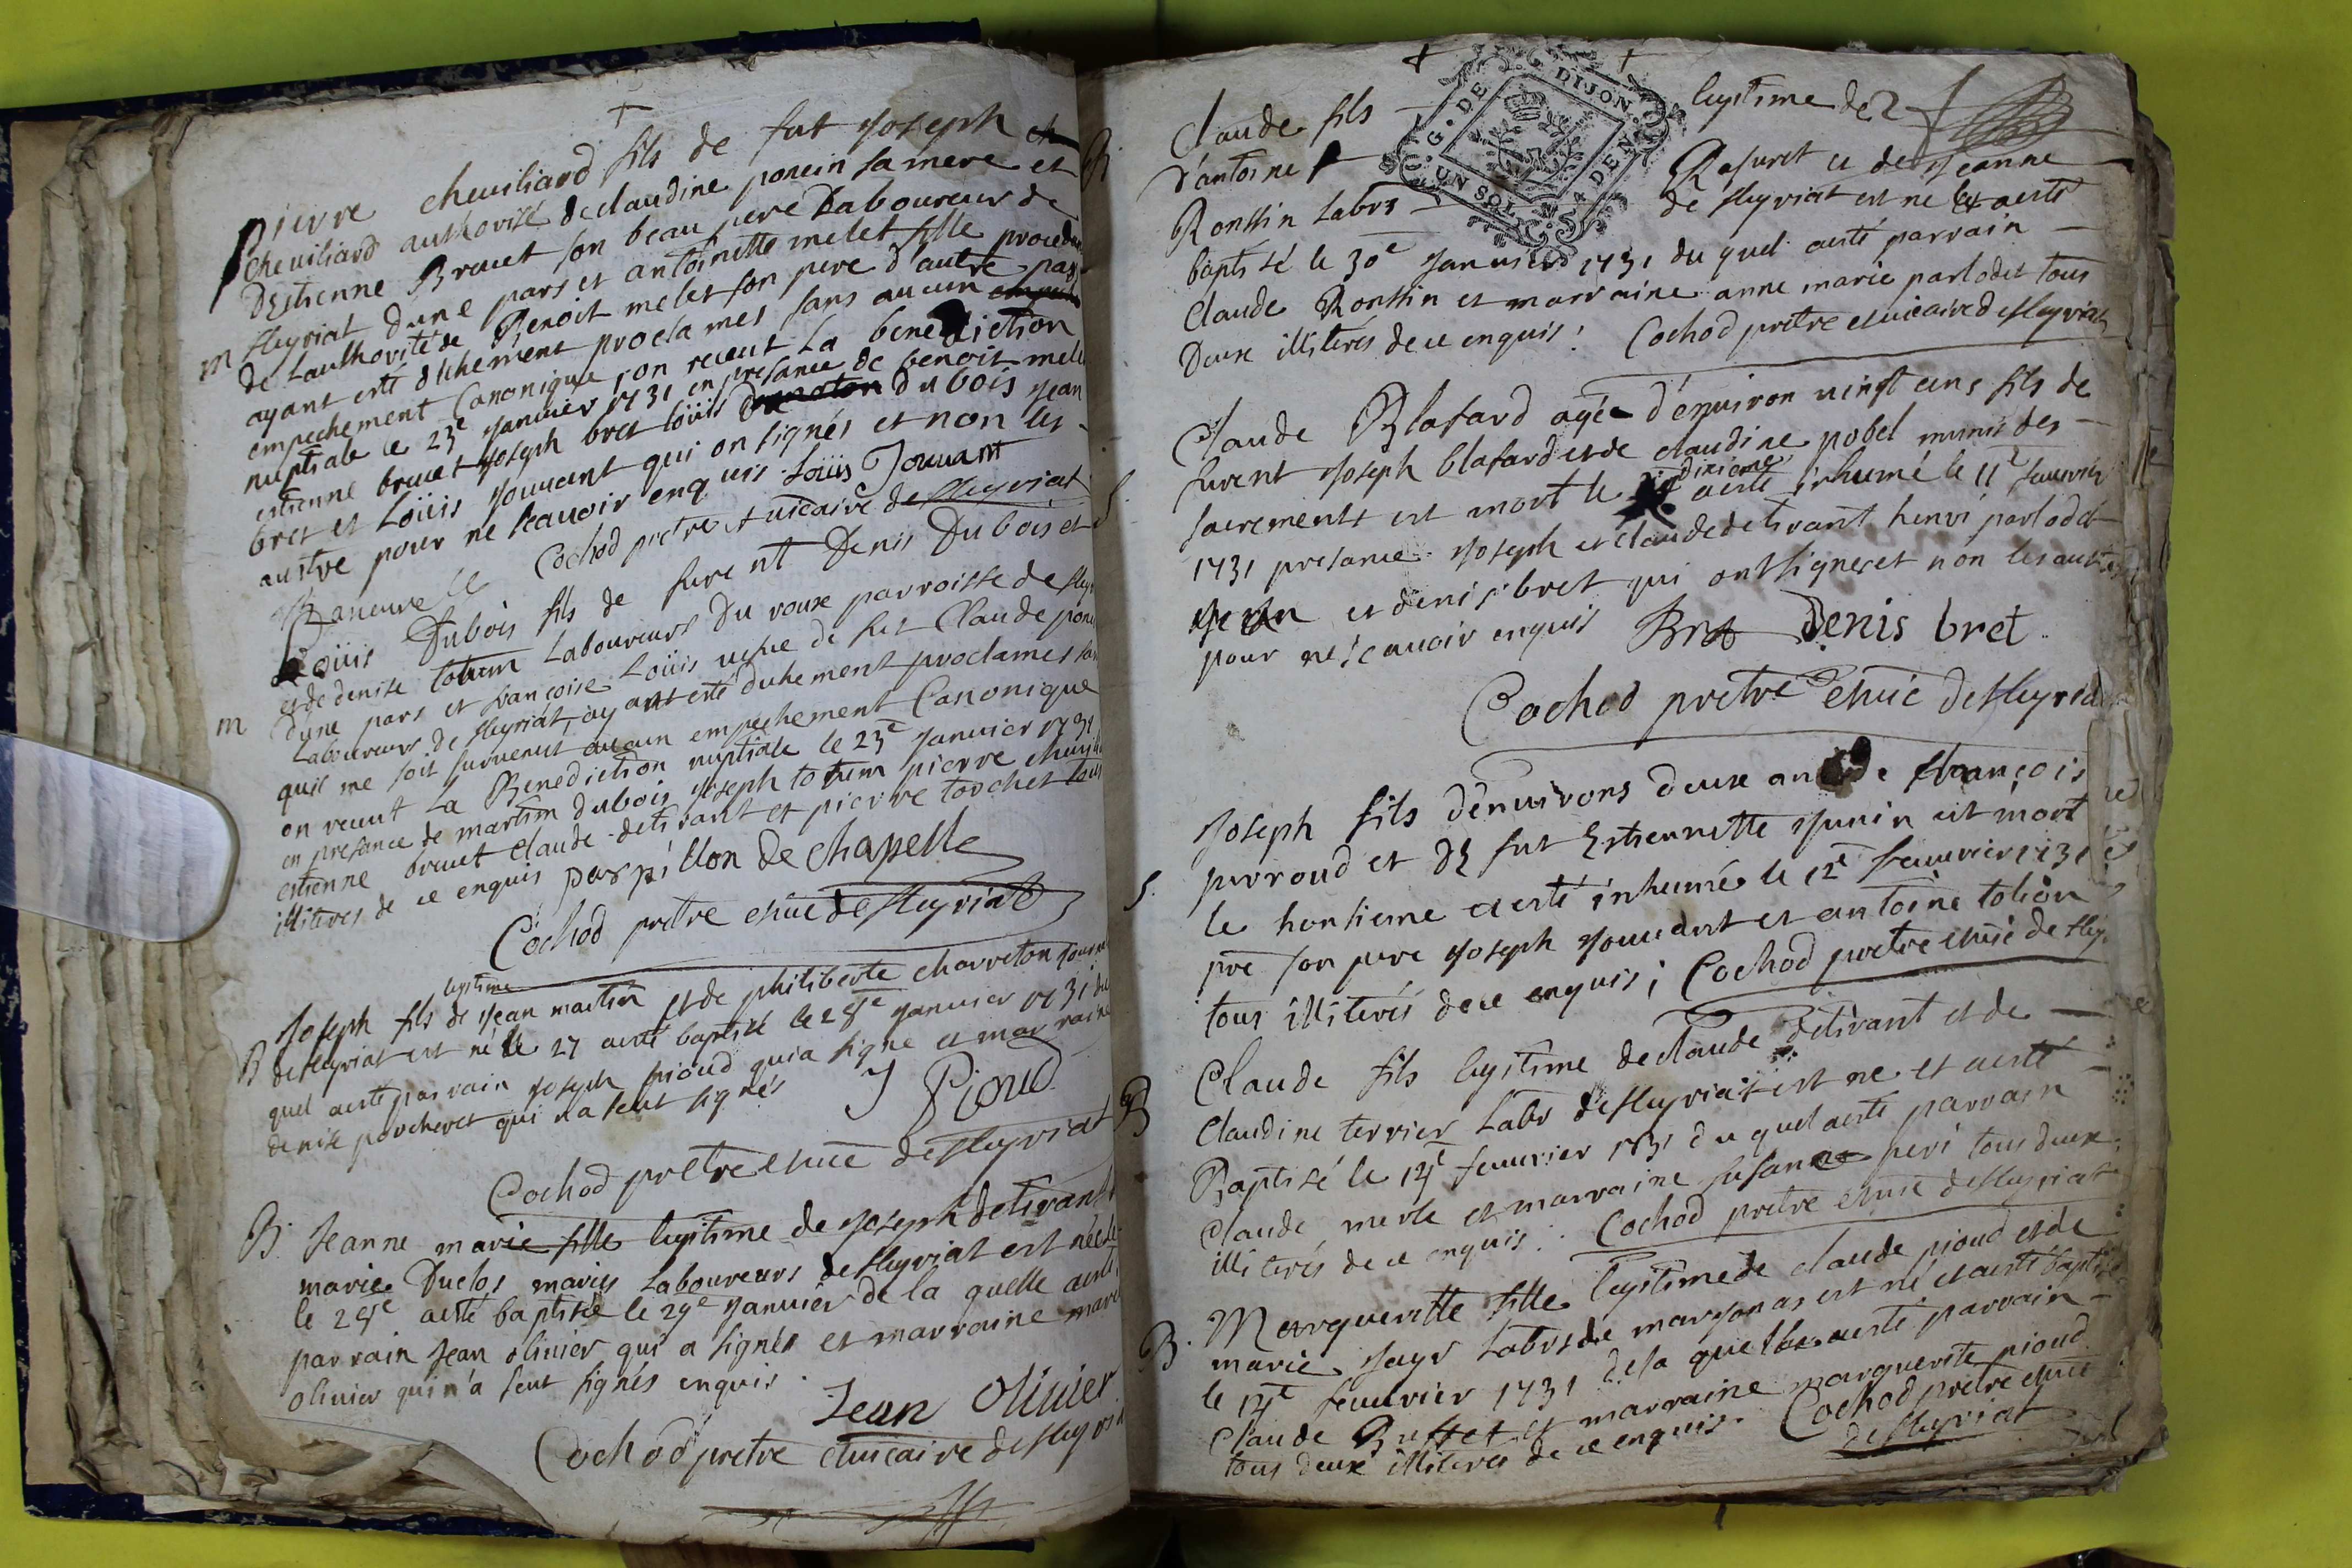 pierre cheuiliard fils de fut Joseph
cheuiliard authorisé de claudine poncin sa mere et
D'Estienne Brouet son beau pere Laboureurs de
m fleyriat d'une pars et antoinette melet fille
de Lauthorité de Benoit melet son pere d'autre par
ayant esté duhement proclames sans aucun
empechement Canonique, on receut La benediction
nuptiale le 23e Januier 1731 en presance de benoit mel
estienne brouet Joseph bret Loüis Dubois Jean
bret et Loüis Jouuent qui on signés et non les
austre pour ne scauoir enquis Loüis Jouuant
Cochod pretre et uicaire de fleyriat
Loüis Dubois fils de furent Denis Dubois et
et de denise totum Laboureurs Du roux parroisse de fley
m d'une pars et francoise Loüis uefue de fut Claude pon
Laboureurs de fleyriat, ayant esté duhement proclames
quil me soit suruenut aucun empechement Canonique
on receut La Benediction nuptiale le 23e Januier 1731
en presance de martin dubois Joseph totum pierre
estienne brouet claude detirant et pierre torchet tous
illiteres de ce enquis papillon de chapelle
Cochod pretre et uic de fleyriat
legitime
Joseph fils de Jean martin et de philiberte charreton
B de fleyriat est né le 27 aesté baptisé le 28e Januier 1731 du
quel aesté parrain Joseph pioud qui a signe et marraine
denise porcheret qui n'a seut signés J Pioud
Cochod pretre et uic de fleyriat
B. Jeanne marie fille legitime de Joseph detirant
marie Duclos maries Laboureurs de fleyriat est née
le 28e aesté baptisée le 29e Januier de la quelle aesté
parrain Jean oliuier qui a signés et marraine
oliuier qui n'a seut signés enquis.
Jean Oliuier
Cochod pretre et uicaire de fleyria
Claude fils legitime de
G. DE DIJON
UN SOL 4 DEN
d'antoine Rasuret et de Jeanne
Ronssin Labrs de fleyriat est né et aesté
baptisé le 30e Januier 1731 du quel aesté parrain
Claude Ronssin et marraine anne marie parlodet tous
Deux illiterés de ce enquis: Cochod pretre et uicaire d efleyriat
Claude Blafard agé d'enuiron uingt cins fils de
furent Joseph blafard et de claudine pobel munis des
dixieme
sacrements est mort le aesté inhumé le 11e feuurier
1731 presance Joseph et claude detirant henri parlodet
Jean et denis bret qui ont signes et non les autres
pour ne scauoir enquis Bret Denis bret
Cochod pretre et uic de fleyria
Joseph fils d'enuirons deux ans de francois
perroud et De fut Estiennette Junin est mort
S. le honsieme aesté inhumé le 12e feuurier 1731
pre son pere Joseph Jouuant et antoine tolion
tous illiterés de ce enquis; Cochod pretre et uic de fley
Claude fils legitime de claude detirant et de
B Claudine terrier Labr de fleyriat est ne et aesté
Baptisé le 14e feuurier 1731 du quel aesté parrain
Claude merle et marraine susanne peri tous deux
illiterés de ce enquis: Cochod pretre et uic de fleyriat
Marguerette fille legitime de claude pioud et de
B. marie Jayr Labrs de marsonas est né et aesté baptisé
le 14e feuurier 1731 de la quelle aesté parrain
Claude Buffet et marraine marguerite pioud
tous deux illiteres de ce enquis. Cochod pretre et uic
de fleyriat